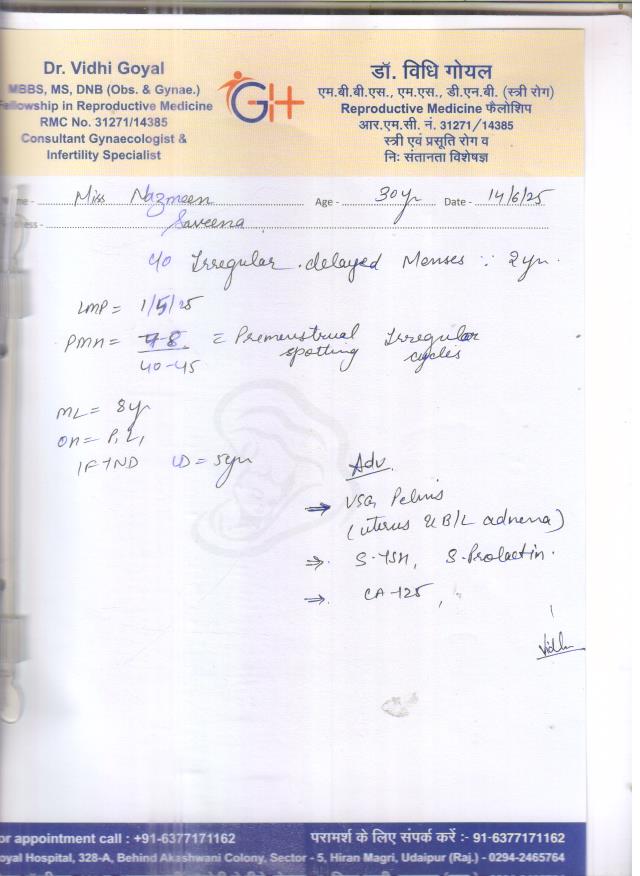 Dr. Vidhi Goyal
MBBS, MS, DNB (Obs. & Gynae.)
Fellowship in Reproductive Medicine
RMC No. 31271/14385
Consultant Gynaecologist &
Infertility Specialist
GH
डॉ. विधि गोयल
एम.बी.बी.एस., एम.एस., डी.एन.बी. (स्त्री रोग)
Reproductive Medicine फैलोशिप
आर.एम.सी. नं. 31271/14385
स्त्री एवं प्रसूति रोग व
निः संतानता विशेषज्ञ
me - Miss Nazmeen Age - 30yr Date - 14/6/25
ress - Saveena
c/o Irregular . delayed Menses ∵ 2yr.
LMP = 1/5/25
PMH = 7-8 / 40-45 = Premenstrual spotting Irregular cycles
ML = 8yr
OH = P1 L1
1 FTND LD = 5yr
Adv.
⇒ USG Pelvis
(uterus & B/L adnexa)
⇒ S-TSH, S-Prolactin.
⇒ CA-125,
Vidhi
or appointment call : +91-6377171162 परामर्श के लिए संपर्क करें :- 91-6377171162
oyal Hospital, 328-A, Behind Akashwani Colony, Sector - 5, Hiran Magri, Udaipur (Raj.) - 0294-2465764